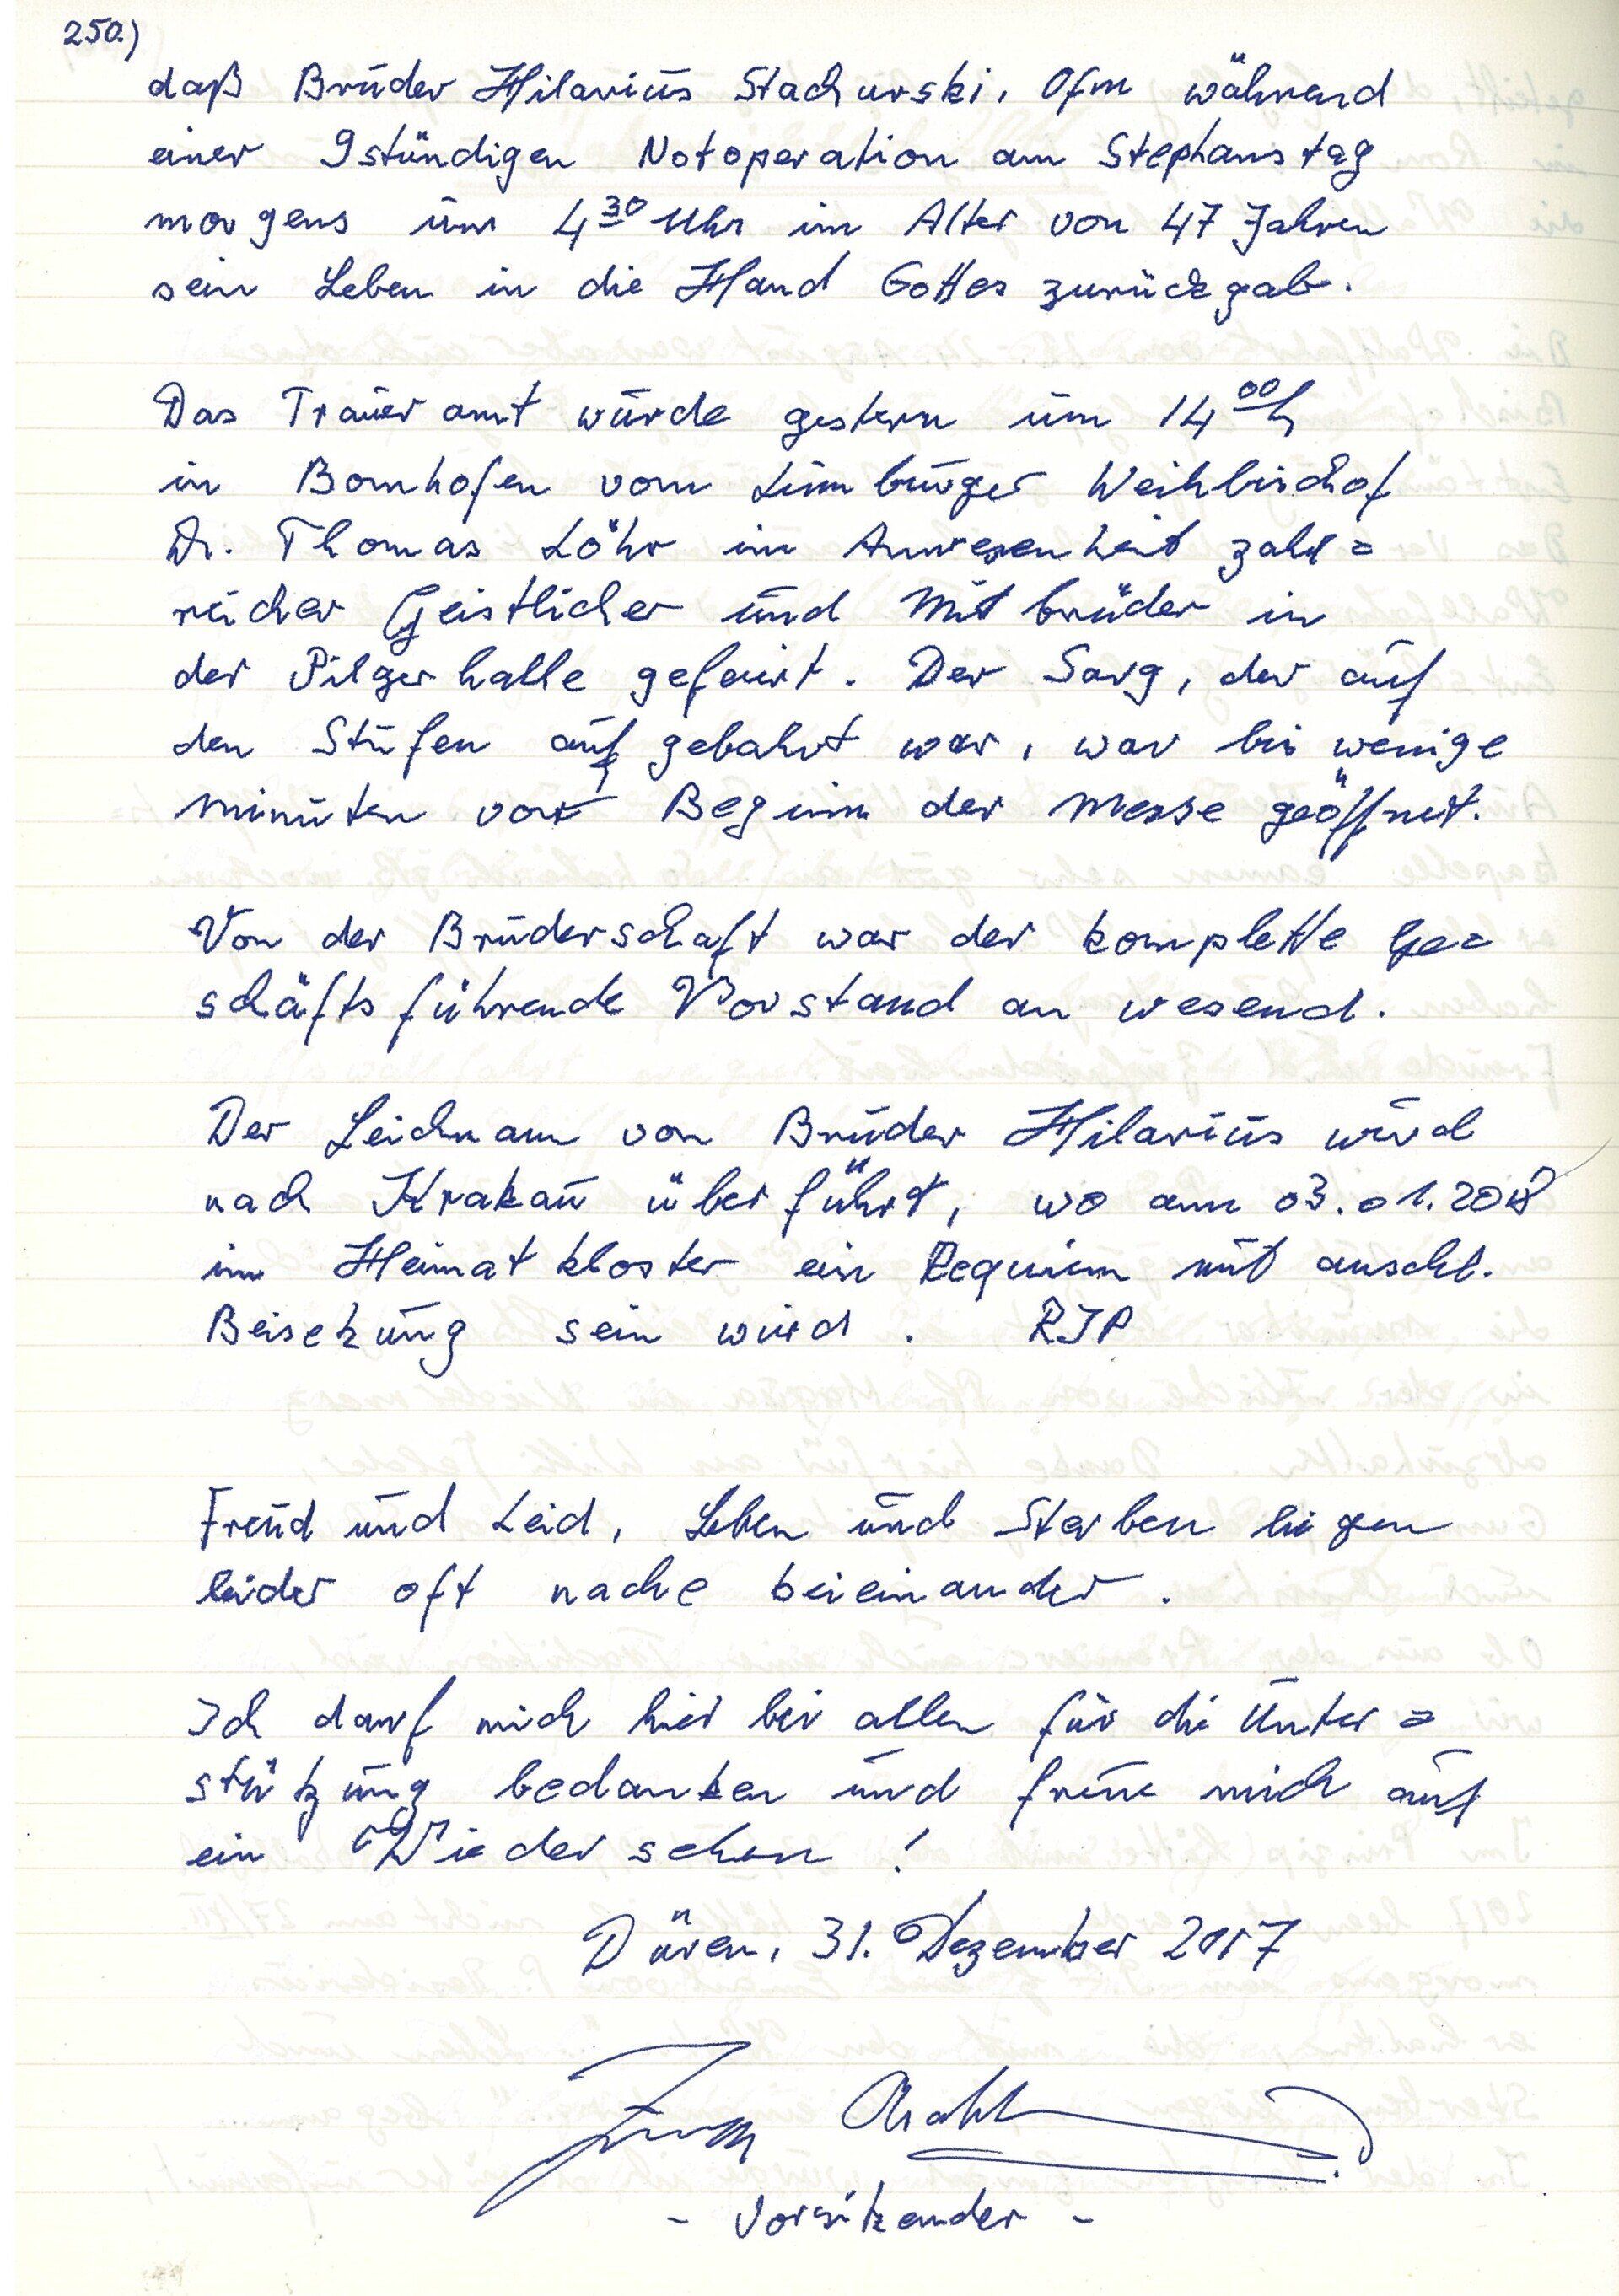 250.)
daß Bruder Hilarius Stachurski, Ofm während
einer 9stündigen Notoperation am Stephanstag
morgens um 4³⁰ Uhr im Alter von 47 Jahren
sein Leben in die Hand Gottes zurückgab.
Das Traueramt wurde gestern um 14⁰⁰h
in Bornhofen vom Limburger Weihbischof
Dr. Thomas Löhr im Anwesenheit zahl=
reicher Geistlicher und Mitbrüder in
der Pilgerhalle gefeiert. Der Sarg, der auf
den Stufen aufgebahrt war, war bis wenige
Minuten vor Beginn der Messe geöffnet.
Von der Bruderschaft war der komplette Ge=
schäftsführende Vorstand anwesend.
Der Leichnam von Bruder Hilarius wird
nach Krakau überführt, wo am 03.01.2018
im Heimatkloster ein Requiem mit anschl.
Beisetzung sein wird. RIP
Freud und Leid, Leben und Sterben liegen
leider oft nache beieinander.
Ich darf mich hier bei allen für die Unter=
stützung bedanken und freue mich auf
ein Wiedersehen!
Düren, 31. Dezember 2017
- Vorsitzender -